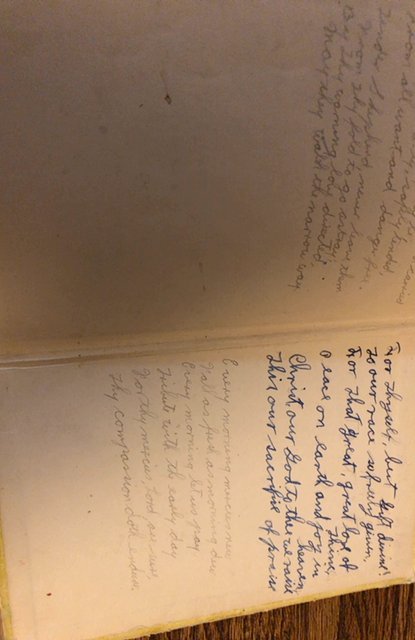 from all want and danger free.
Tender Shepherd, never leave them
From Thy fold to go astray;
By Thy warning love directed
May they walk the narrow way
For Thyself, best gift divine!
To our race so freely given,
For that great, great love of
Thine,
Peace on earth and joy in
heaven
Christ our God to thee we raise
This our sacrifice of praise
Every morning mercies new
Fall as fresh as morning dew
Every morning let us pay
Tribute with the early day
For thy mercies, Lord, are sure,
Thy compassion doth endure.